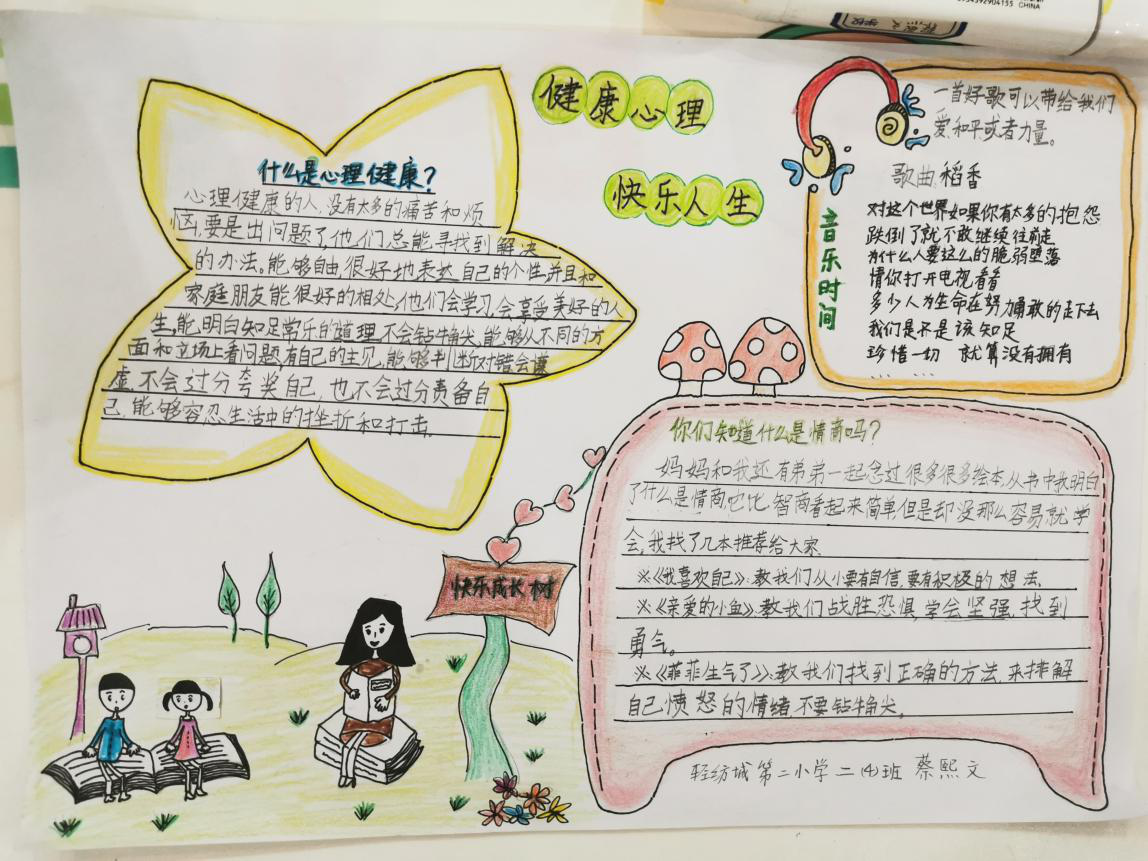 健康心理
快乐人生
什么是心理健康?
心理健康的人,没有太多的痛苦和烦
恼,要是出问题了,他们总能寻找到解决
的办法。能够自由,很好地表达自己的个性,并且和
家庭朋友能很好的相处,他们会学习,会享受美好的人
生,能明白知足常乐的道理,不会钻牛角尖,能够从不同的方
面和立场上看问题,有自己的主见,能够判断对错会谦
虚,不会过分夸奖自己,也不会过分责备自
己,能够容忍生活中的挫折和打击。
一首好歌可以带给我们
爱,和平或者力量。
歌曲 稻香
音乐时间
对这个世界如果你有太多的抱怨
跌倒了就不敢继续往前走
为什么人要这么的脆弱堕落
情你打开电视看看
多少人为生命在努力勇敢的走下去
我们是不是该知足
珍惜一切 就算没有拥有
…… ……
你们知道什么是情商吗?
妈妈和我还有弟弟一起念过很多很多绘本,从书中我明白
了什么是情商,它比智商看起来简单但是却没那么容易就学
会,我找了几本推荐给大家
※《我喜欢自己》:教我们从小要有自信,要有积极的想法,
※《亲爱的小鱼》:教我们战胜恐惧,学会坚强,找到
勇气。
※《菲菲生气了》:教我们找到正确的方法,来排解
自己愤怒的情绪,不要钻牛角尖。
轻纺城第二小学二(4)班 蔡熙文
快乐成长树
CHINA